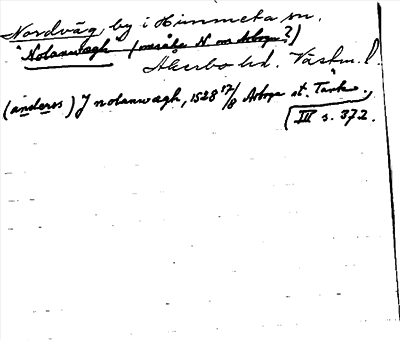 Nordväg by i Himmeta sn.
"Nolanwægh (område N om Arboga?)
Akerbo hd. Västm. l.
(anderss) J nolanwægh, 1528 17/8 Arboga st. Tänk.,
III s. 372.